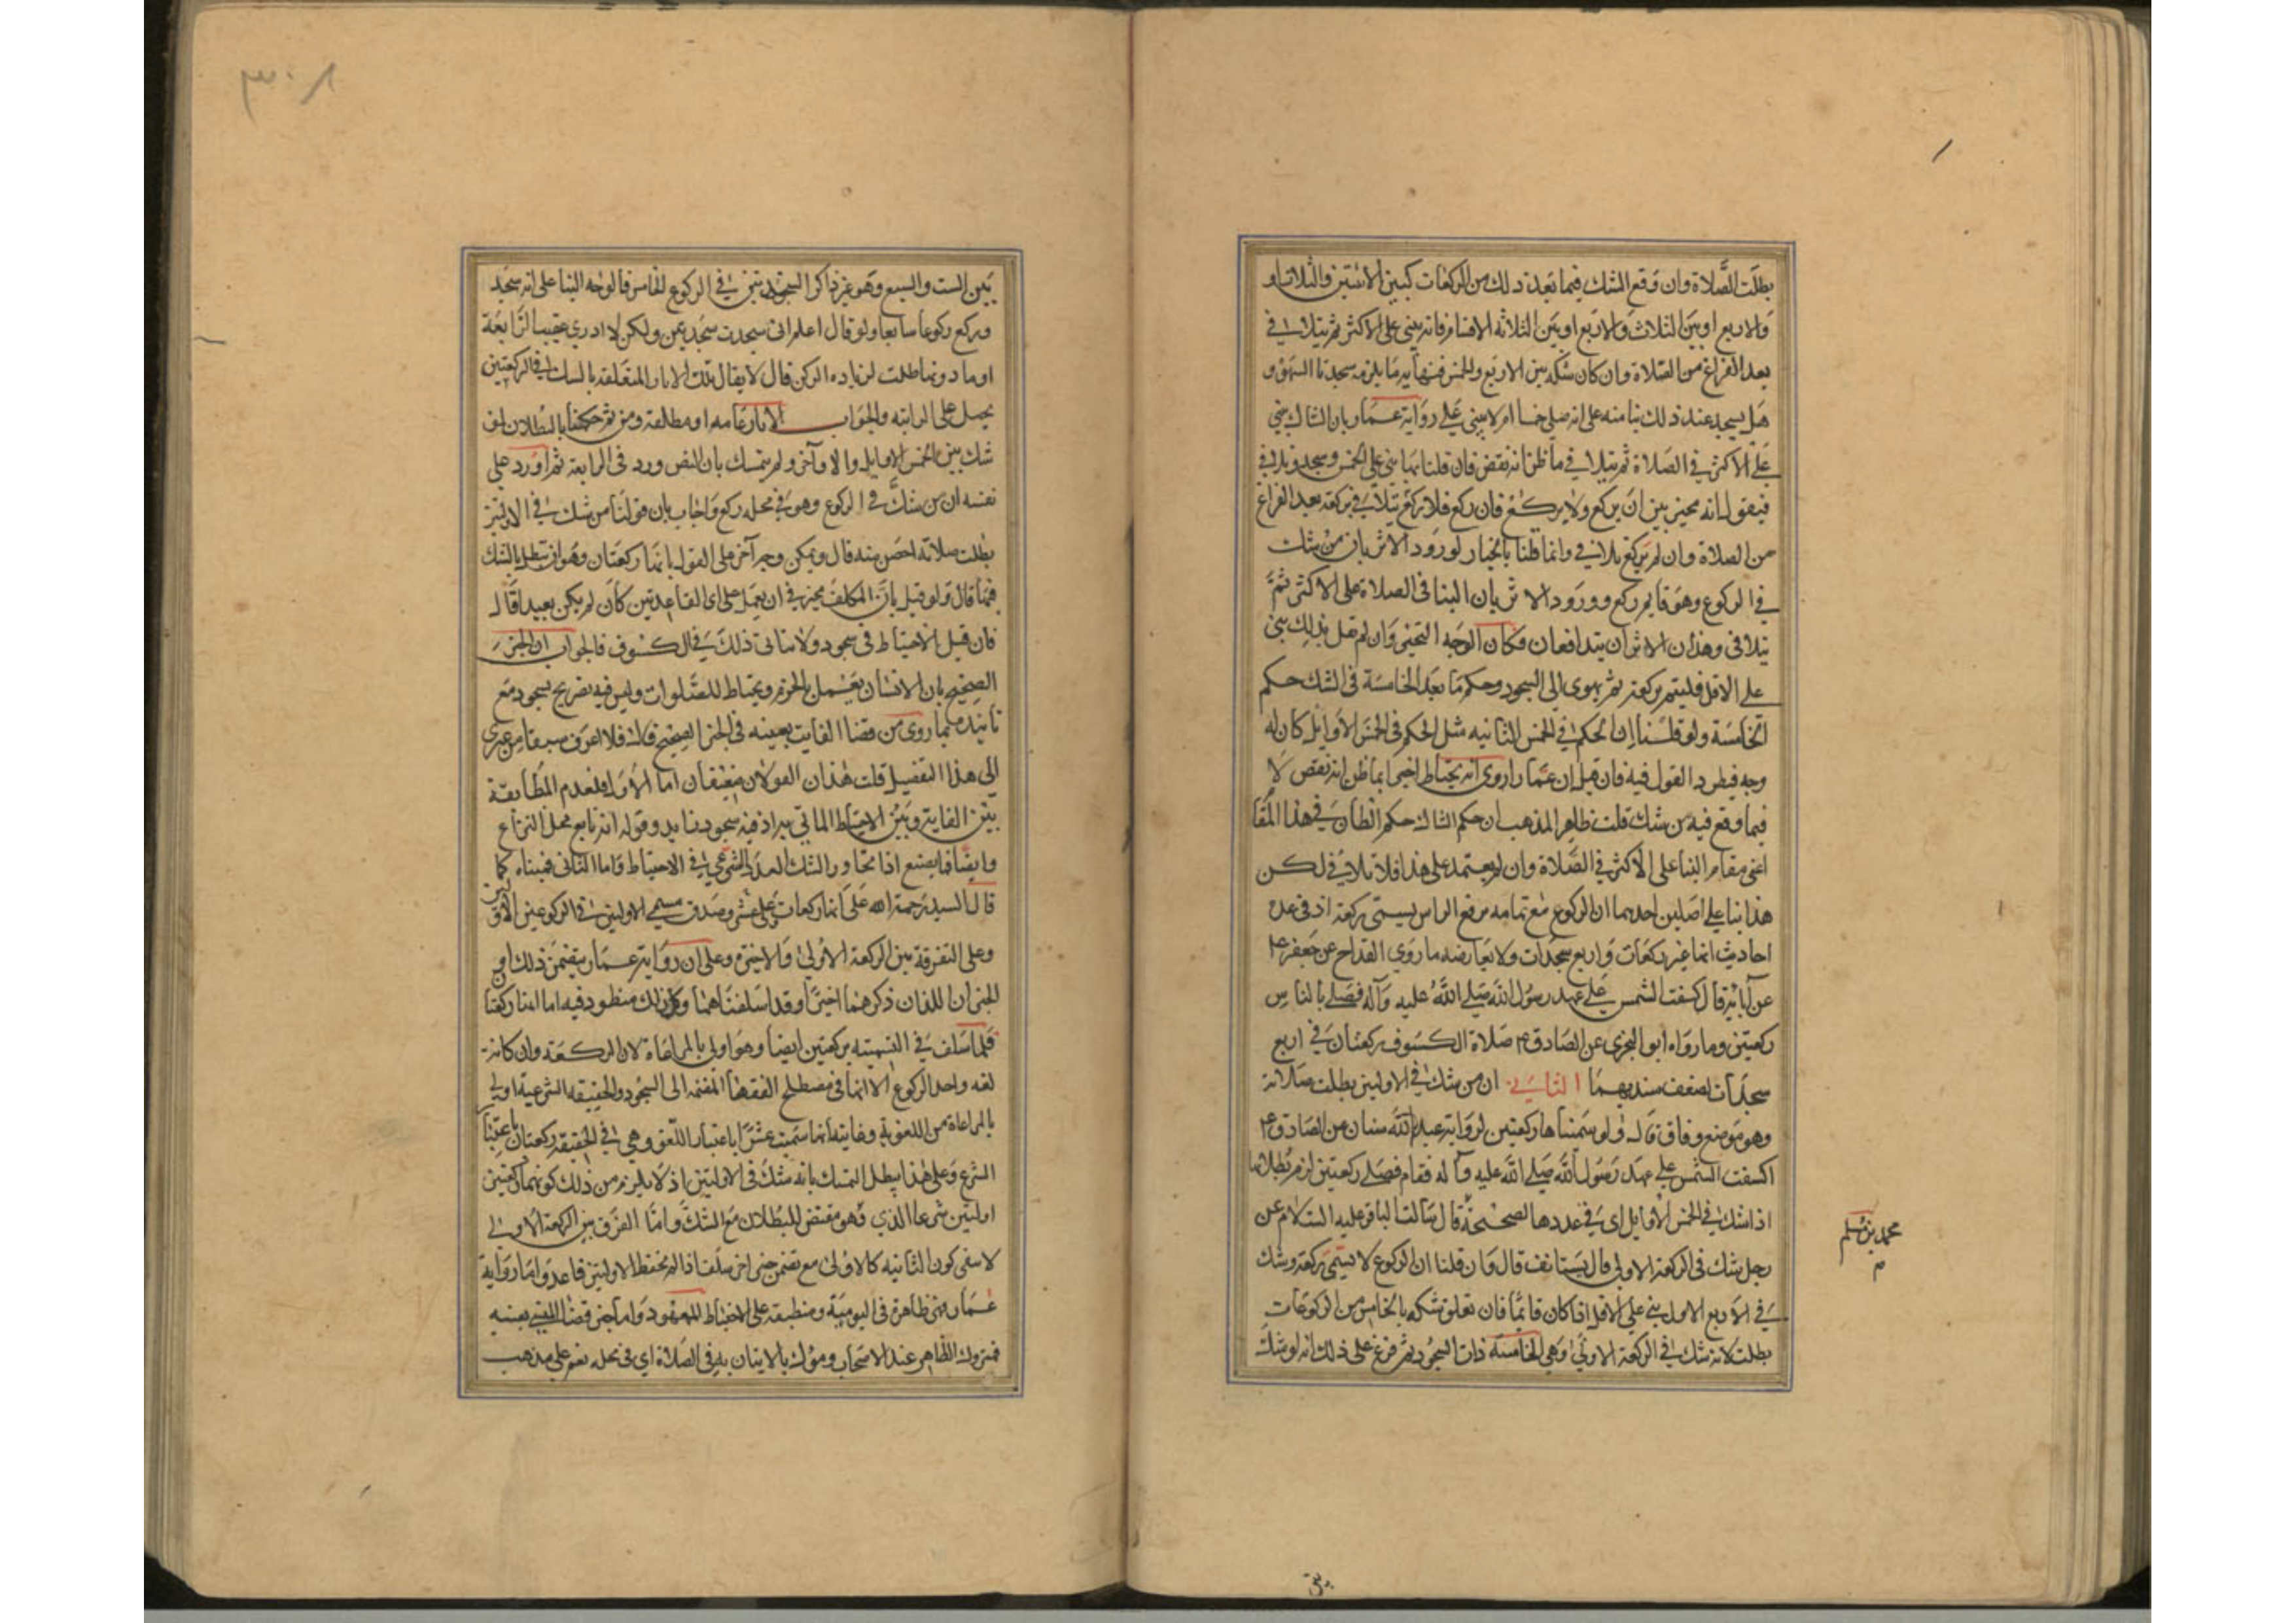 بطلت الصلاة وان وقع الشك فيما بعد ذلك من الركعات كبين الاثنتين والثلاث او
والاربع او بين الثلاث والاربع او بين الثلاثه الاقسام فانه يبني على الاكثر ثم يتلافى
بعد الفراغ من الصلاة وان كان شكه بين الاربع والخمس فنهايه ما يلزمه سجدتا السهو و
هل يسجد عند ذلك بنا منه على انه صلى خمسا ام لا يبني على رواية عمار بان الشاك يبني
على الاكثر في الصلاة ثم يتلافى ما ظن انه نقص فان قلنا بهما بنى على الخمس وسجد وتلافى
فيقول انه مخير بين ان يركع ولا يركع فان ركع فلا يتلافى بركعة بعد الفراغ
من الصلاة وان لم يركع تلافى وانما قلنا بالخيار لورود الاثر بان من شك
في الركوع وهو قايم ركع وورود الاثر بان البنا في الصلاة على الاكثر ثم
يتلافى وهذان الاثران يتدافعان فكان الوجه التخير وان لم نقل بذلك بنى
على الاقل فليتم بركعة ثم يهوي الى السجود وحكم ما بعد الخامسة في الشك حكم
الخامسة ولو قلنا ان الحكم في الخمس الثانيه مثل الحكم في الخمس الاوايل كان له
وجه فيطرد القول فيه فان قيل ان عمارا روى انه يحتاط اخيرا بما ظن انه نقص لا
فيما وقع فيه من شك قلت ظاهر المذهب ان حكم الشاك حكم الظان في هذا المقا
اعني مقام البنا على الاكثر في الصلاة وان لم يعتمد على هذا فلا تلافي لكن
هذا بنا على اصلين احدهما ان الركوع مع تمامه برفع الراس يسمى ركعة اذ في عدة
احاديث انها عشر ركعات واربع سجدات ولا يعارضه ما روي القداح عن جعفر ع
عن آبائه قال كسفت الشمس على عهد رسول الله صلى الله عليه وآله فصلى بالناس
ركعتين وما رواه ابو البختري عن الصادق ع صلاة الكسوف ركعتان في اربع
سجدات لضعف سنديهما الثاني ان من شك في الاوليين بطلت صلاته
وهو موضع وفاق قال ولو سمناها ركعتين لرواية عبد الله سنان عن الصادق ع
اكسفت الشمس على عهد رسول الله صلى الله عليه وآله فقام فصلى ركعتين لزم بطلانها
اذا شك في الخمس الاوايل اي في عددها لصحيحة قال سالت الباقر عليه السلام عن
رجل شك في الركعة الاولى قال يستانف قال وان قلنا ان الركوع لا يسمى ركعة وشك
في الاربع الاول بنى على الاقل اذا كان قائما فان تعلق شكه بالخامس من الركوعات
بطلت لانه شك في الركعة الاولى وهي الخامسة ذات السجود ثم فرع على ذلك انه لو شك
محمد بن مسلم
م
بين
٣٠٨
بين الست والسبع وهو غير ذاكر السجدتين في الركوع الخامس فالوجه البنا على انه سجد
وركع ركوعا سابعا ولو قال اعلم اني سجدت سجدتين ولكن لا ادري عقيب الرابعة
او ما دونها بطلت لزياده الركن قال لا يقال تلك الاثار المتعلقه بالشك في الركعتين
يحمل على الراتبه والجواب الاثار عامه او مطلقه ومن ثم حكمنا بالبطلان لو
شك بين الخمس الاوايل والاواخر ولم يتمسك بان النص ورد في الرابعة ثم اورد على
نفسه ان من شك في الركوع وهو في محله ركع واجاب بان قولنا من شك في الاوليين
بطلت صلاته اخص منه قال ويمكن وجه آخر على القول بانها ركعتان وهو ان تبطل بالشك
فيها قال ولو قيل بان المكلف مخير في ان يعمل على اي القاعدتين كان لم يكن بعيدا قال
فان قيل الاحتياط في سجود ولا يتاتى ذلك في الكسوف فالجواب ان الخبر
الصحيح بان الانسان يعمل بالحزم ويحتاط للصلوات وليس فيه تصريح بسجود مع
تاييده بما روى من قضا الفايت بعينه في الخبر الصحيح قال فلا اعرف سبقا من غيري
الى هذا التفصيل قلت هذان القولان ضعيفان اما الاول فلعدم المطابقة
بين الفايت وبين الاحتياط الماتي به اذ فيه سجود زايد وقوله انه تابع محل النزاع
وايضا فما يصنع اذا تجاوز الشك العدد الشرعي في الاحتياط واما الثاني فمبناه كما
قال السيد رحمه الله على انها ركعات على عشر وصدق مسمى الاوليين في الركوعين الاولين
وعلى التفرقة بين الركعة الاولى والاخيرة وعلى ان رواية عمار يتضمن ذلك او
الخبران اللذان ذكرهما اخيرا وقد اسلفناهما وكل ذلك منظور فيه اما انها ركعتا
فلما سلف في التسميته بركعتين ايضا وهو اولى بالمراعاة لان الركعة وان كانت
لغه واحد الركوع الا انها في مصطلح الفقها المنضمه الى السجود والحقيقه الشرعية اولى
بالمراعاة من اللغوية وغايته انها سميت عشرا باعتبار اللغة وهي في الحقيقة ركعتان باعتبار
الشرع وعلى هذا يبطل التمسك بانه شك في الاوليين اذ لا يلزم من ذلك كونهما ركعتين
اوليين شرعا الذي هو مقتض للبطلان مع الشك واما الفرق بين الركعة الاولى
لا سفى كون الثانيه كالاولى مع تضمن خبر اخر سلف اذا لم تحفظ الاوليين فاعد واما رواية
عمار فهي ظاهرة في اليومية ومنطبقة على الاحتياط المعهود واما خبر قضا الشي بعينه
فمتروك الظاهر عند الاصحاب وموول بالاتيان به في الصلاة اي في محله نعم على مذهب